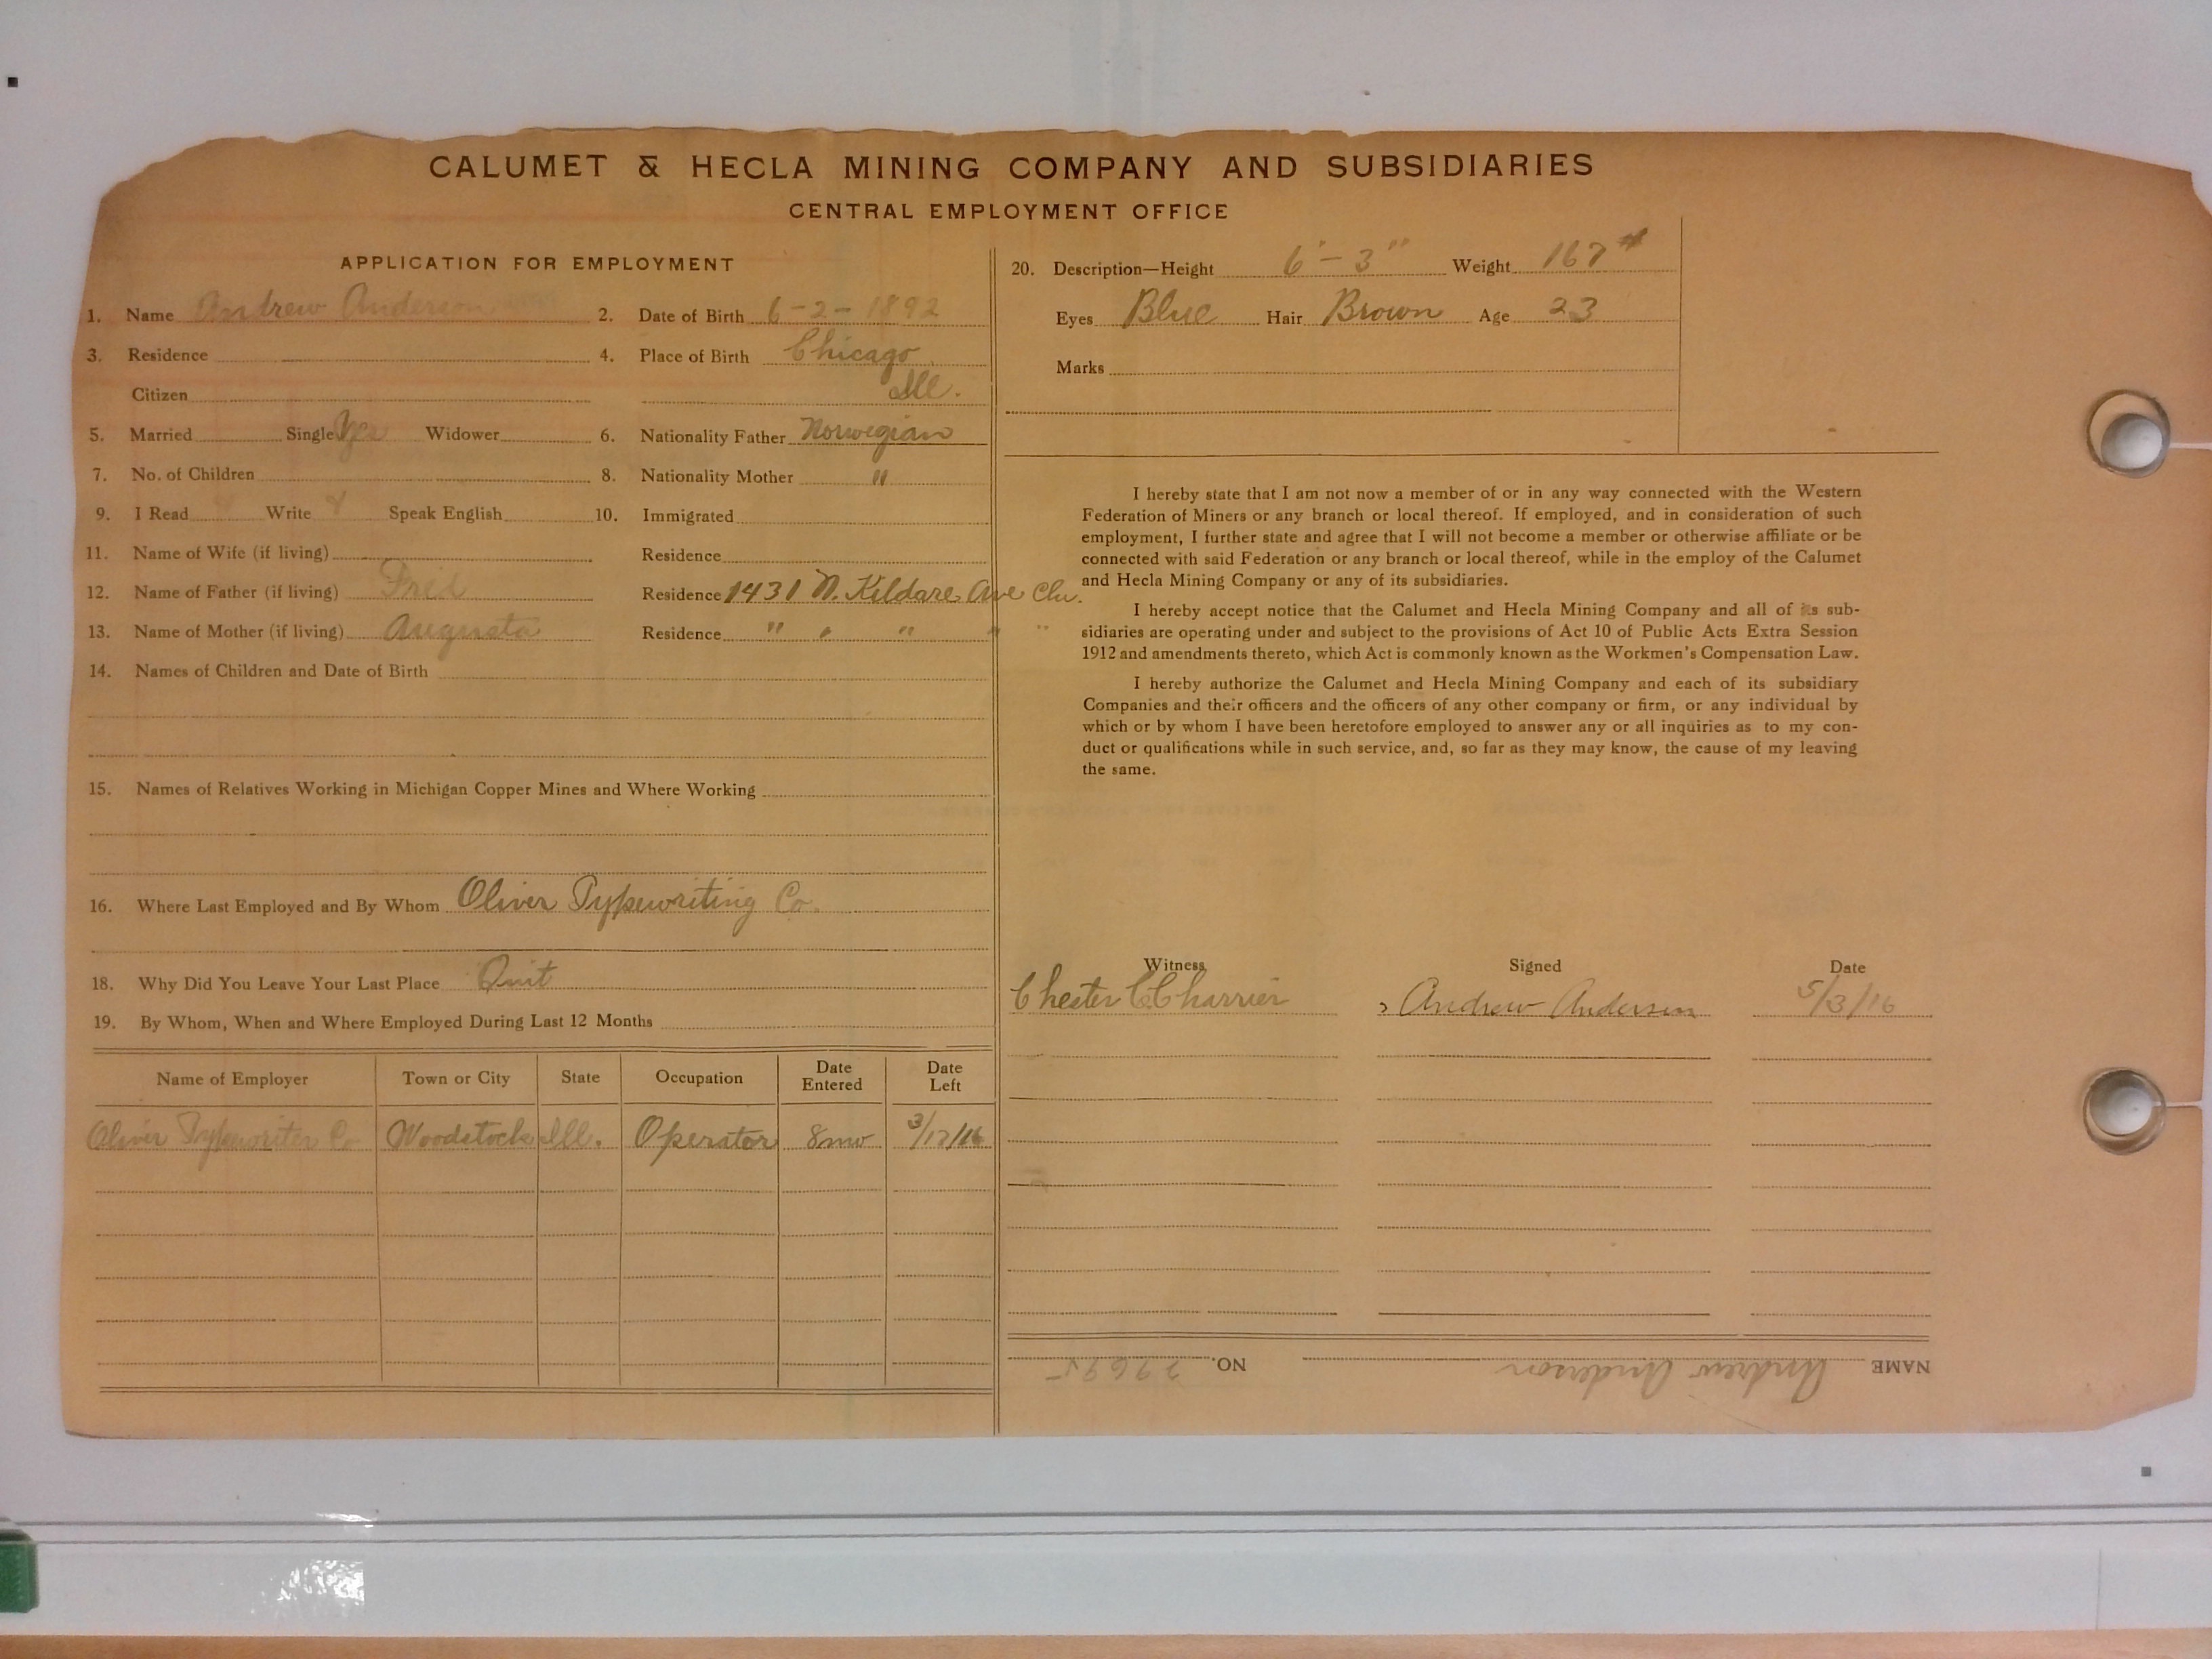 CALUMET & HECLA MINING COMPANY AND SUBSIDIARIES
CENTRAL EMPLOYMENT OFFICE
APPLICATION FOR EMPLOYMENT
1. Name Andrew Anderson 2. Date of Birth 6-2-1892
3. Residence 4. Place of Birth Chicago
Citizen Ill.
5. Married Single Yes Widower 6. Nationality Father Norwegian
7. No. of Children 8. Nationality Mother "
9. I Read Write Y Speak English 10. Immigrated
11. Name of Wife (if living) Residence
12. Name of Father (if living) Fred Residence 1431 N. Kildare Ave Chi.
13. Name of Mother (if living) Augusta Residence " " " " "
14. Names of Children and Date of Birth
15. Names of Relatives Working in Michigan Copper Mines and Where Working
16. Where Last Employed and By Whom Oliver Typewriting Co.
18. Why Did You Leave Your Last Place Quit
19. By Whom, When and Where Employed During Last 12 Months
Name of Employer Town or City State Occupation Date Entered Date Left
Oliver Typewriter Co Woodstock Ill. Operator 8 mo 3/12/16
20. Description—Height 6'-3" Weight 167#
Eyes Blue Hair Brown Age 23
Marks
I hereby state that I am not now a member of or in any way connected with the Western
Federation of Miners or any branch or local thereof. If employed, and in consideration of such
employment, I further state and agree that I will not become a member or otherwise affiliate or be
connected with said Federation or any branch or local thereof, while in the employ of the Calumet
and Hecla Mining Company or any of its subsidiaries.
I hereby accept notice that the Calumet and Hecla Mining Company and all of its sub-
sidiaries are operating under and subject to the provisions of Act 10 of Public Acts Extra Session
1912 and amendments thereto, which Act is commonly known as the Workmen's Compensation Law.
I hereby authorize the Calumet and Hecla Mining Company and each of its subsidiary
Companies and their officers and the officers of any other company or firm, or any individual by
which or by whom I have been heretofore employed to answer any or all inquiries as to my con-
duct or qualifications while in such service, and, so far as they may know, the cause of my leaving
the same.
Witness Signed Date
Chester C. Charrier Andrew Anderson 5/3/16
NAME Andrew Anderson NO. 27695